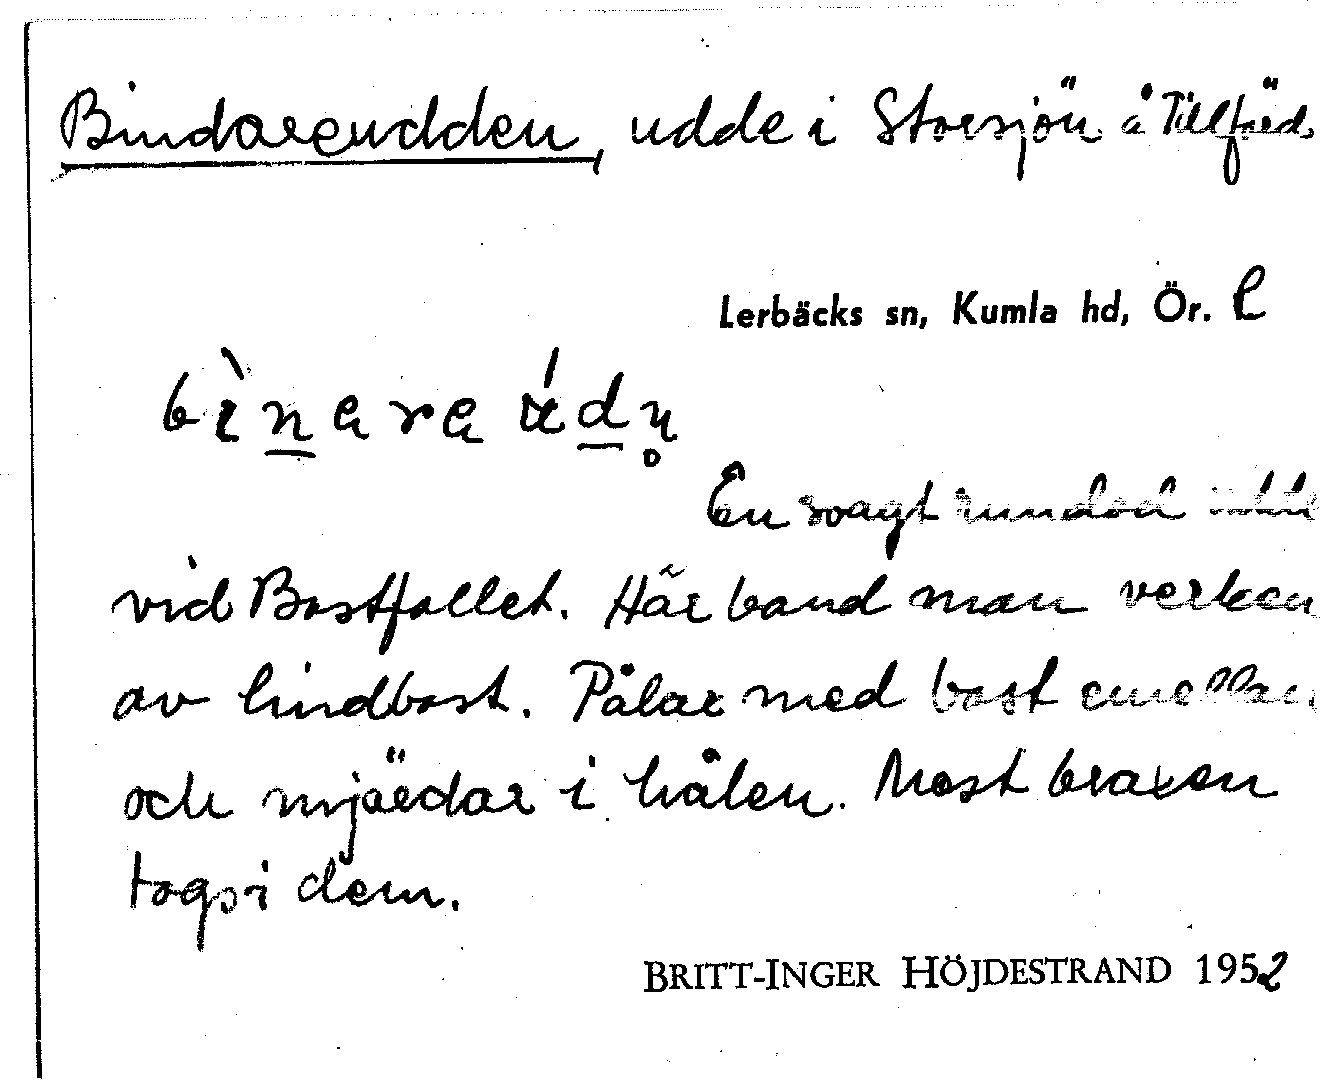 Bindareudden, udde i Storsjön å Tillfäd.
Lerbäcks sn, Kumla hd, Ör. l
En svagt rundad udde
vid Bastfallet. Här band man verken
av lindbast. Pålar med bast emellan
och mjärdar i hålen. Mest braxen
togs i dem.
BRITT-INGER HÖJDESTRAND 1952